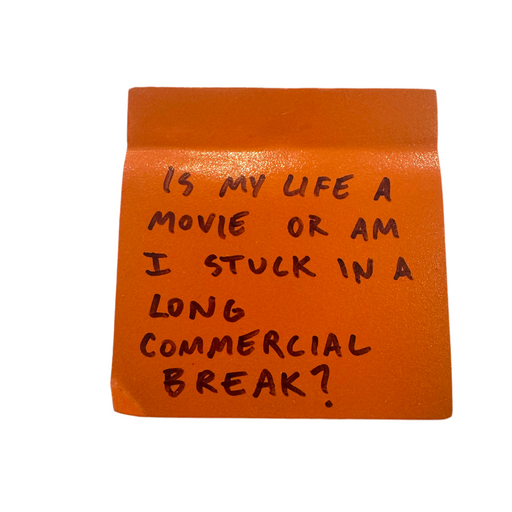 IS MY LIFE A
MOVIE OR AM
I STUCK IN A
LONG
COMMERCIAL
BREAK?